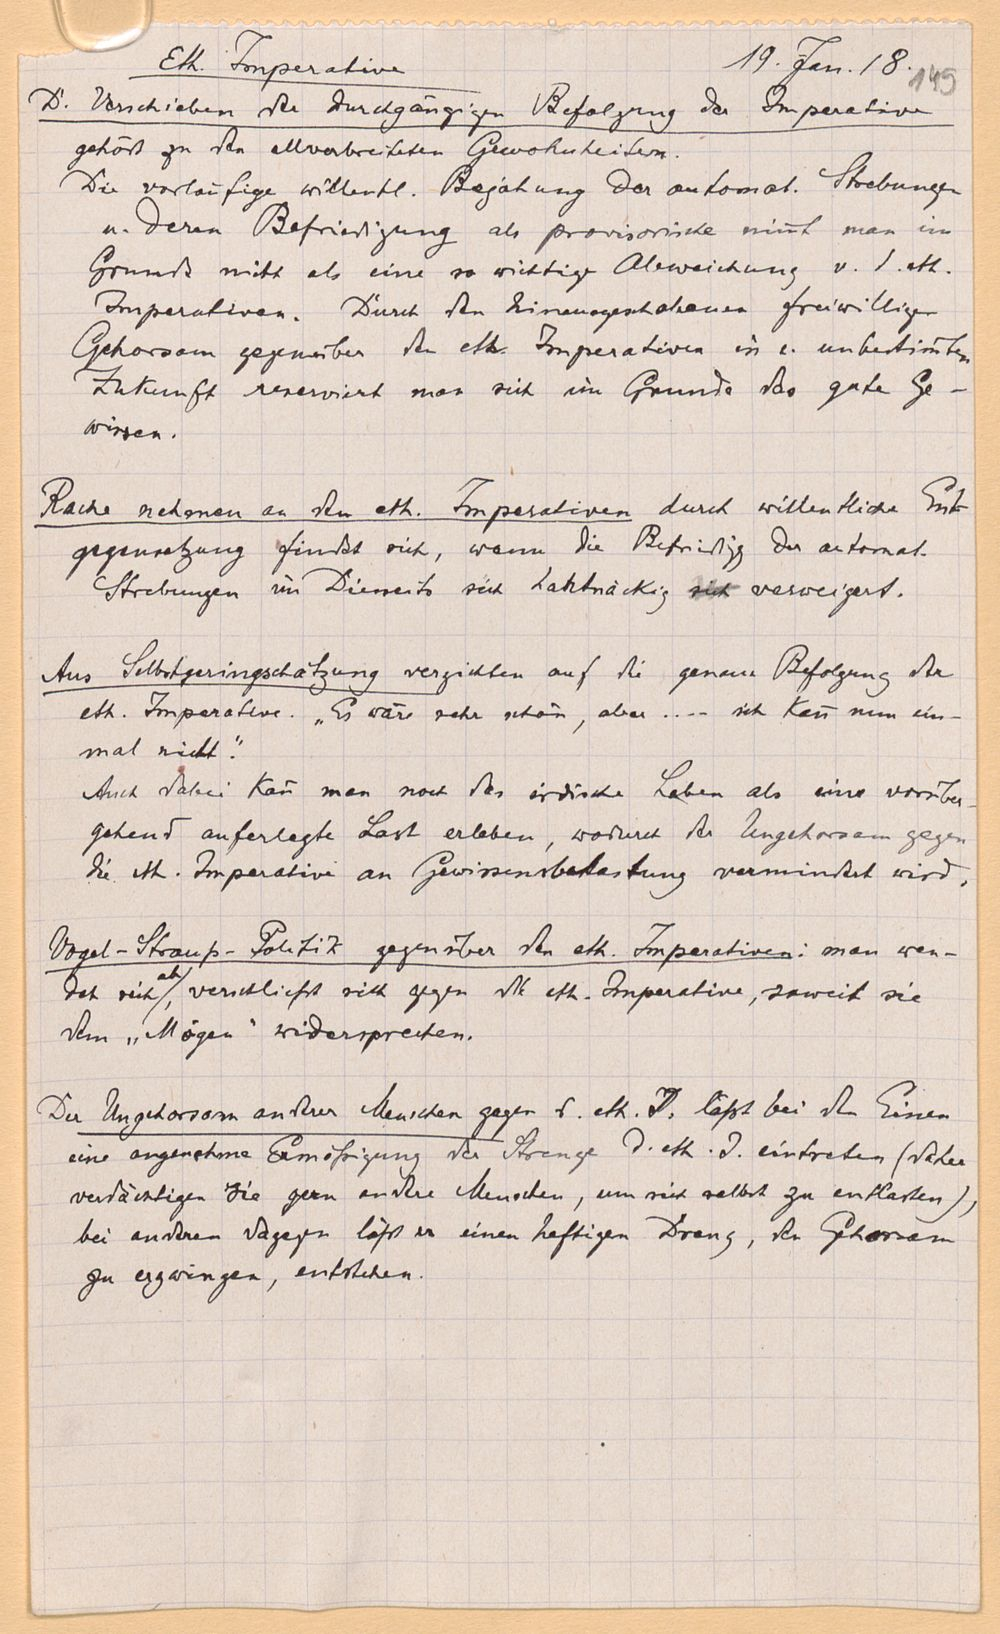 Eth. Imperative 19. Jan. 18.
149
D. Verschieben der durchgängigen Befolgung der Imperative
gehört zu den allverbreiteten Gewohnheiten.
Die vorläufige willentl. Bejahung der automat. Strebungen
u. deren Befriedigung als provisorische nim̄t man im
Grunde nicht als eine so wichtige Abweichung v. d. eth.
Imperativen. Durch den hinausgeschobenen freiwilligen
Gehorsam gegenüber den eth. Imperativen in e. unbestim̄ten
Zukunft reserviert man sich im Grunde das gute Ge-
wissen.
Rache nehmen an den eth. Imperativen durch willentliche Ent-
gegensetzung findet sich, wenn die Befriedigg der automat.
Strebungen im Diesseits sich hartnäckig sich verweigert.
Aus Selbstgeringschätzung verzichten auf die genaue Befolgung der
eth. Imperative. „Es wäre sehr schön, aber .... ich kan̄ nun ein-
mal nicht".
Auch dabei kan̄ man noch das irdische Leben als eine vorüber-
gehend auferlegte Last erleben, wodurch der Ungehorsam gegen
die eth. Imperative an Gewissensbelastung vermindert wird.
Vogel-Strauß-Politik gegenüber den eth. Imperativen: man wen-
det sich ab, verschließt sich gegen die eth. Imperative, soweit sie
dem „Mögen" widersprechen.
Der Ungehorsam anderer Menschen gegen d. eth. I. läßt bei den Einen
eine angenehme Ermäßigung der Strenge d. eth. I. eintreten (daher
verdächtigen sie gern andere Menschen, um sich selbst zu entlasten),
bei anderen dagegen läßt er einen heftigen Drang, den Gehorsam
zu erzwingen, entstehen.